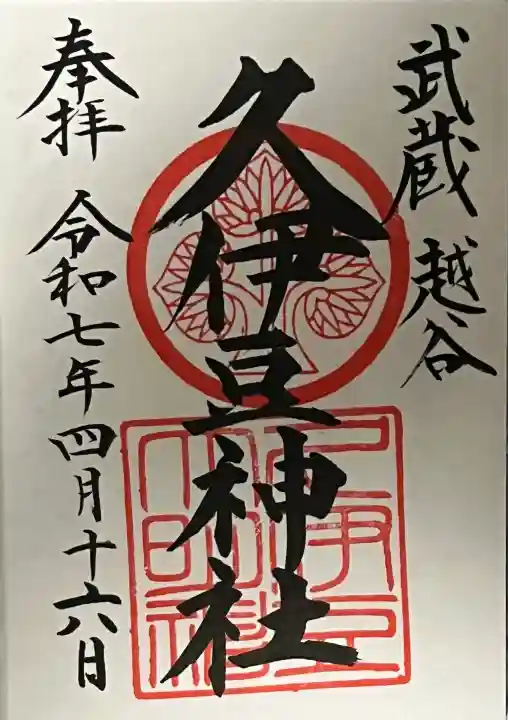 武蔵 越谷
久伊豆神社
奉拝 令和七年四月十六日
久伊豆
大明神